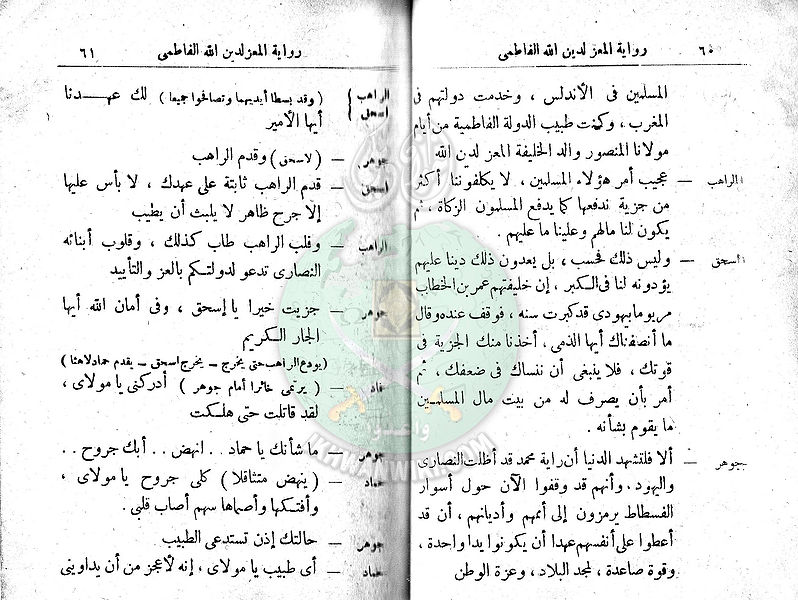 ٦٠ رواية المعز لدين الله الفاطمى
المسلمين فى الأندلس ، وخدمت دولتهم فى
المغرب ، وكنت طبيب الدولة الفاطمية من أيام
مولانا المنصور والد الخليفة المعز لدين الله
الراهب — عجيب أمر هؤلاء المسلمين ، لا يكلفوننا أكثر
من جزية ندفعها كما يدفع المسلمون الزكاة ، ثم
يكون لنا مالهم وعلينا ما عليهم .
اسحق — وليس ذلك فحسب ، بل يعدون ذلك دينا عليهم
يؤدونه لنا فى الكبر ، إن خليفتهم عمر بن الخطاب
مر يوما يهودى قد كبرت سنه ، فوقف عنده وقال
ما أنصفناك أيها الذمى ، أخذنا منك الجزية فى
قوتك ، فلا ينبغى أن ننساك فى ضعفك ، ثم
أمر بأن يصرف له من بيت مال المسلمين
ما يقوم بشأنه .
جوهر — ألا فلتشهد الدنيا أن راية محمد قد أظلت النصارى
واليهود ، وأنهم قد وقفوا الآن حول أسوار
الفسطاط يرمزون إلى أممهم وأديانهم ، أن قد
أعطوا على أنفسهم عهدا أن يكونوا يدا واحدة ،
وقوة صاعدة ، لمجد البلاد ، وعزة الوطن
رواية المعز لدين الله الفاطمى ٦١
الراهب
اسحق
( وقد بسطا أيديهما وتصافحوا جميعا ) لك عهدنا
أيها الأمير
جوهر — ( لاسحق ) وقدم الراهب
اسحق — قدم الراهب ثابتة على عهدك ، لا بأس عليها
إلا جرح ظاهر لا يلبث أن يطيب
الراهب — وقلب الراهب طاب كذلك ، وقلوب أبنائه
النصارى تدعو لدولتكم بالعز والتأييد
جوهر — جزيت خيرا يا إسحق ، وفى أمان الله أيها
الجار الكريم
( يودع الراهب حتى يخرج — يخرج اسحق — يقدم حماد لاهثا )
حماد — ( يرتمى خائرا أمام جوهر ) أدركنى يا مولاى ،
لقد قاتلت حتى هلكت
جوهر — ما شأنك يا حماد . . انهض . . أبك جروح . .
حماد — ( ينهض متثاقلا ) كلى جروح يا مولاى ،
وأفتكها وأصماها سهم أصاب قلبى .
جوهر — حالتك إذن تستدعى الطبيب
حماد — أى طبيب يا مولاى ، إنه لأعجز من أن يداوينى
واعدوا
IKHWANWIKI.COM